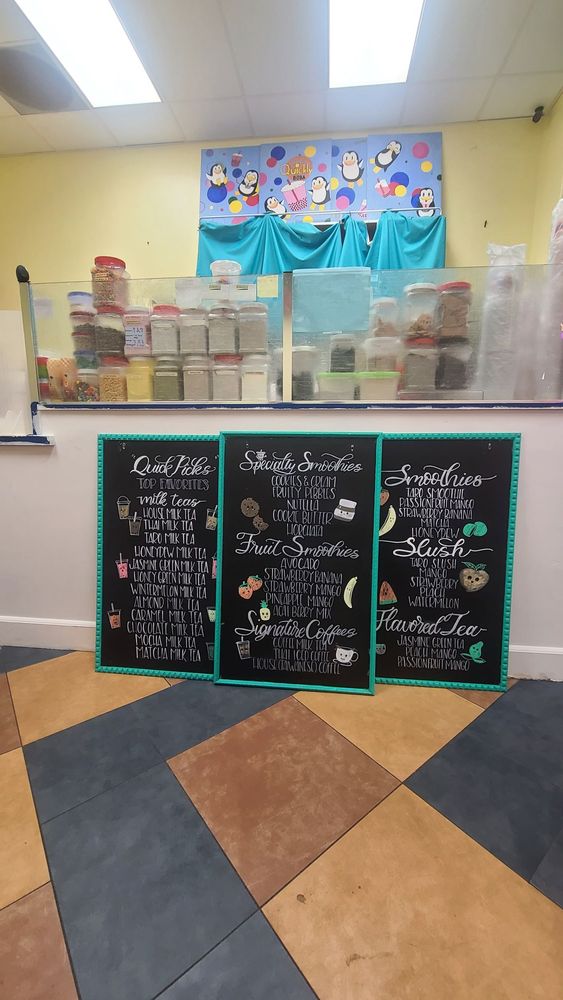 Quickly
BOBA
Quick Picks
TOP FAVORITES
milk teas
HOUSE MILK TEA
THAI MILK TEA
TARO MILK TEA
HONEYDEW MILK TEA
JASMINE GREEN MILK TEA
HONEY GREEN MILK TEA
WINTERMELON MILK TEA
ALMOND MILK TEA
CARAMEL MILK TEA
CHOCOLAT MILK TEA
MATCHA MILK TEA
Specialty Smoothies
COOKIES & CREAM
FRUITY PEBBLES
NUTELLA
COOKIE BUTTER
HORCHATA
Fruit Smoothies
AVOCADO
STRAWBERRY BANANA
STRAWBERRY MANGO
PINEAPPLE MANGO
ACAI BERRY MIX
Signature Coffees
COFFEE MILK TEA
VIET ICED COFFEE
HOUSE TAIWANESE ICED COFFEE
Smoothies
TARO SMOOTHIE
PASSIONFRUIT MANGO
STRAWBERRY BANANA
MATCHA
HONEYDEW
Slush
TARO SLUSH
MANGO
STRAWBERRY
PEACH
WATERMELON
Flavored Tea
JASMINE GREEN TEA
PEACH MANGO
PASSIONFRUIT MANGO